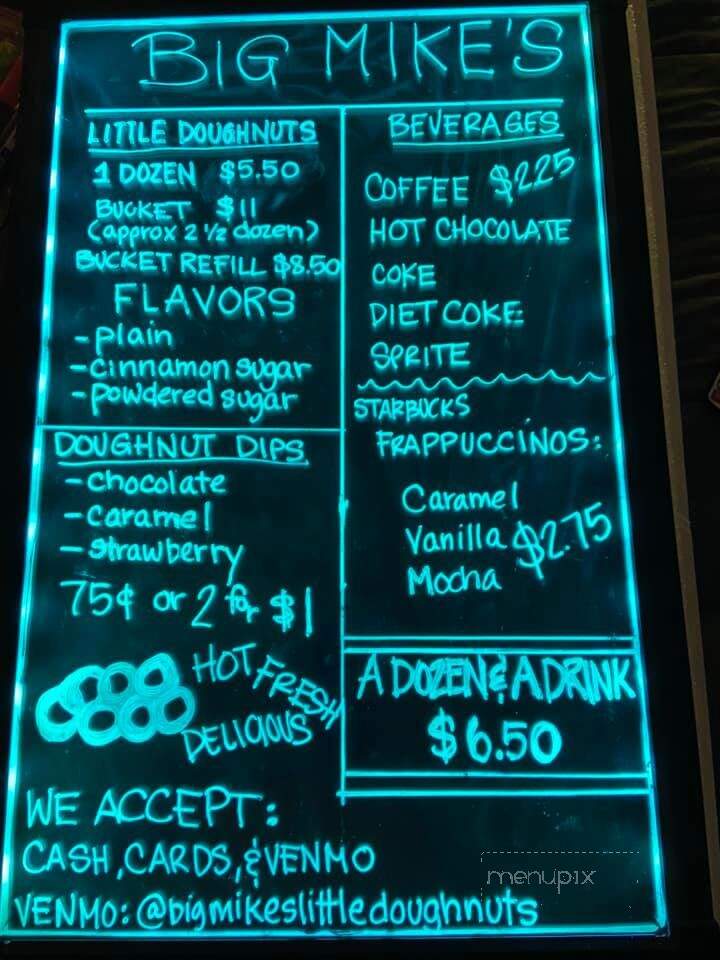 BIG MIKE'S
LITTLE DOUGHNUTS
1 DOZEN $5.50
BUCKET $11
(approx 2 1/2 dozen)
BUCKET REFILL $8.50
FLAVORS
-plain
-cinnamon sugar
-powdered sugar
DOUGHNUT DIPS
-chocolate
-caramel
-strawberry
75¢ or 2 for $1
HOT FRESH
DELICIOUS
BEVERAGES
COFFEE $2.25
HOT CHOCOLATE
COKE
DIET COKE
SPRITE
STARBUCKS
FRAPPUCCINOS:
Caramel
Vanilla $2.75
Mocha
A DOZEN & A DRINK
$6.50
WE ACCEPT:
CASH, CARDS, & VENMO
VENMO: @bigmikeslittledoughnuts
menupix